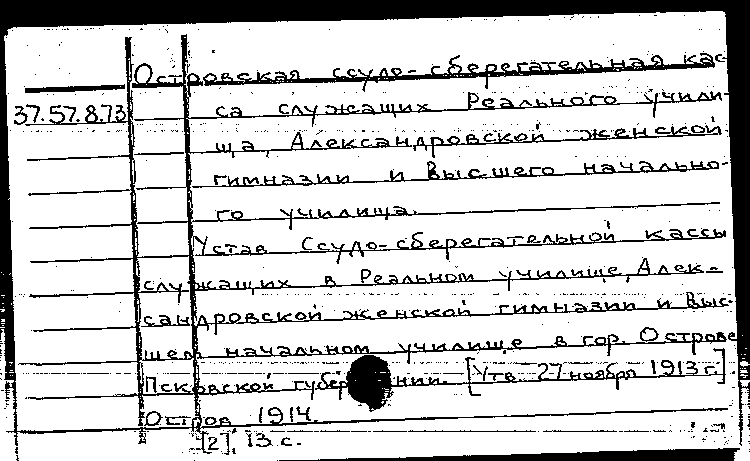 Островская ссудо-сберегательная кас-
37.57.8.73 са служащих Реального учили-
ща, Александровской женской
гимназии и Высшего начально-
го училища.
Устав Ссудо-сберегательной кассы
служащих в Реальном училище, Алек-
сандровской женской гимназии и Выс-
шем начальном училище в гор. Острове
Псковской губернии. [Утв. 27 ноября 1913 г.].
Остров 1914.
[2], 13 с.